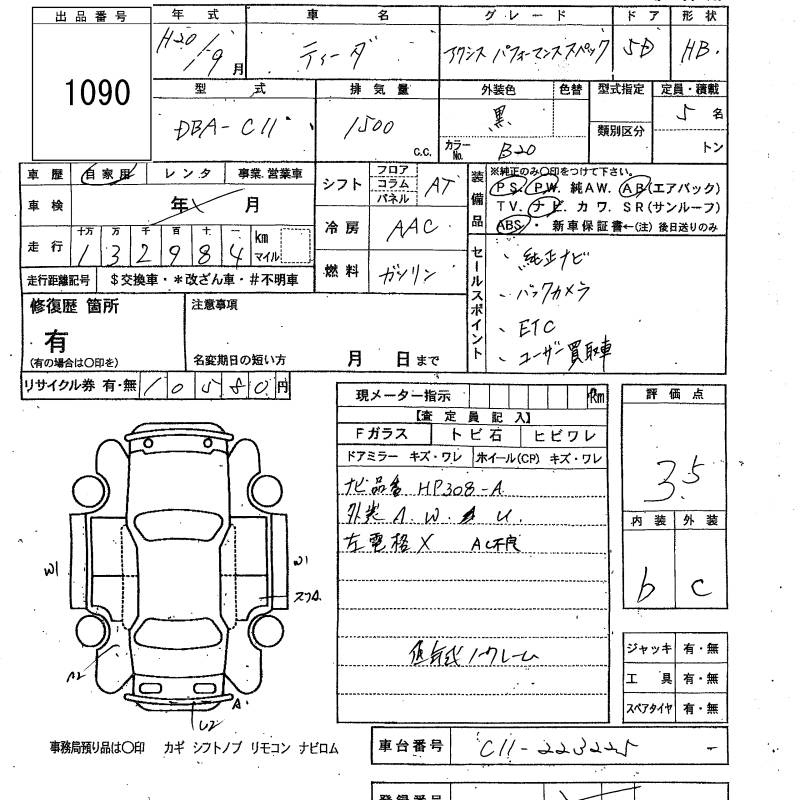 出品番号 年式 車名 グレード ドア 形状
1090
H20/9月 ティーダ アクシス パフォーマンススペック 5D HB.
型式 排気量 外装色 色替 型式指定 定員・積載
DBA-C11 1500 c.c. 黒 5名
類別区分
カラーNo. B20 トン
車歴 自家用 レンタ 事業.営業車
車検 年 月
走行 十万 万 千 百 十 一 km マイル
132984
走行距離記号 $交換車・*改ざん車・#不明車
シフト フロア コラム パネル AT
冷房 AAC
燃料 ガソリン
装備品 ※純正のみ〇印をつけて下さい。
PS. PW. 純AW. AB(エアバック)
TV. ナビ. カワ. SR(サンルーフ)
ABS. ・新車保証書←(注) 後日送りのみ
セールスポイント
、純正ナビ
、バックカメラ
、ETC
、ユーザー買取車
修復歴 箇所
有
(有の場合は〇印を)
注意事項
名変期日の短い方 月 日まで
リサイクル券 有・無 10580円
現メーター指示 Km
【査定員記入】
Fガラス トビ石 ヒビワレ
ドアミラー キズ・ワレ ホイール(CP) キズ・ワレ
ナビ品番 HP308-A
外装 A. W. U.
左電格X AC不良
評価点
3.5
内装 外装
b C
W1 W1
A2 A.
U2
ジャッキ 有・無
工具 有・無
スペアタイヤ 有・無
事務局預り品は〇印 カギ シフトノブ リモコン ナビロム
車台番号 C11-223225 -
登録番号